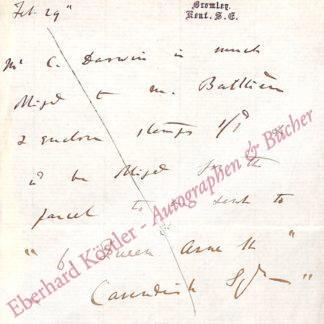 Bromley.
Kent. S.E.
Feb. 29th
Mr C. Darwin is much
obliged to M. Baillière
& enclose stamps 1/1d &
wd be obliged for the
parcel to be sent to
"6 Queen Anne St"
Cavendish Sqre
Eberhard Köstler - Autographen & Bücher